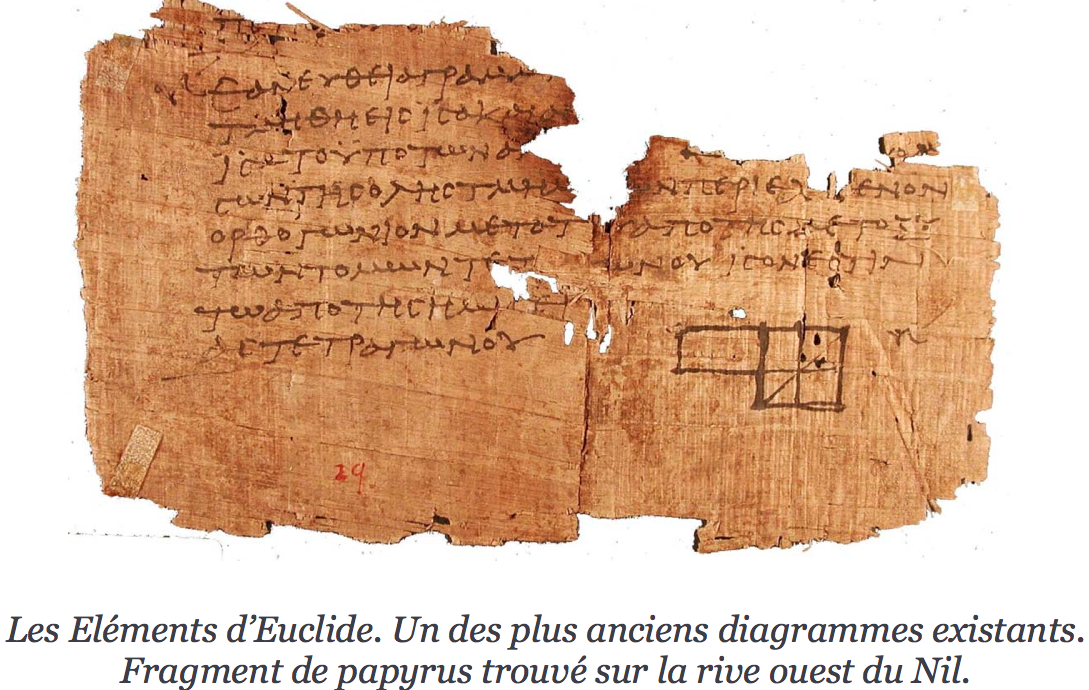 ΕΑΝΕΥΘΕΙΑΓΡΑΜΜ
ΤΜΗΘΗΕΙϹΙϹΑΚΑΙ
ΙϹΑΤΟΥΠΟΤΩΝΑ
ϹΩΝΤΗϹΟΛΗϹΤΜΗΜ ΩΝΠΕΡΙΕΧ ΕΝΟΝ
ΟΡΘΟΓΩΝΙΟΝΜΕΤΑΤ ΥΑΠΟΤΗϹΜΕΤΟΞΥ
ΤΩΝΤΟΜΩΝΤΕΤ ΩΝΟΥΙϹΟΝΕϹΤΙΝ
ΤΩΑΠΟΤΗϹΗΜΙ ΕΙ
ΑϹΤΕΤΡΑΓΩΝΟΥ
29
Les Eléments d’Euclide. Un des plus anciens diagrammes existants.
Fragment de papyrus trouvé sur la rive ouest du Nil.